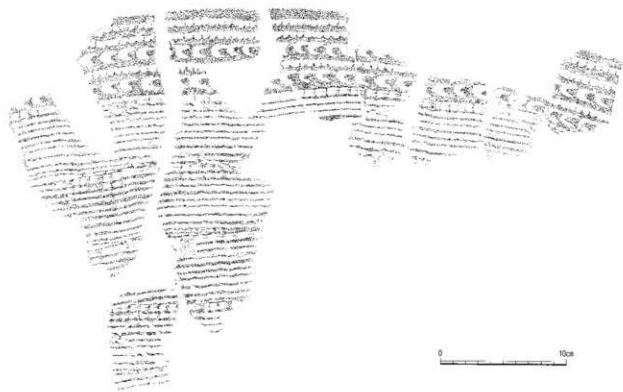 0 10cm